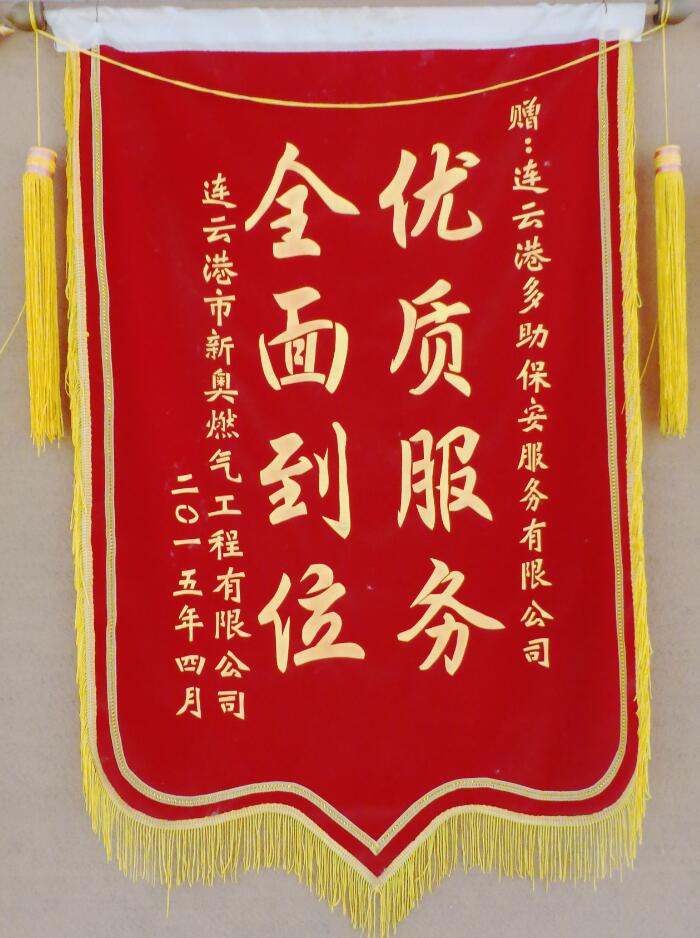 赠：连云港多助保安服务有限公司
优质服务
全面到位
连云港市新奥燃气工程有限公司
二〇一五年四月